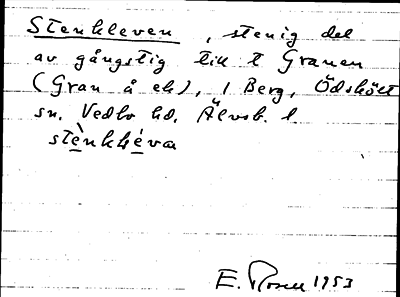 Stenkleven, stenig del
av gångstig till t Granen
(Gran å ek), 1 Berg, Ödskölt
sn. Vedbo hd. Älvsb. l.
stènkléva
E. Rosen 1953